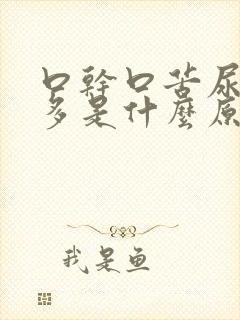 口幹口苦尿
多是什麼原
我是鱼